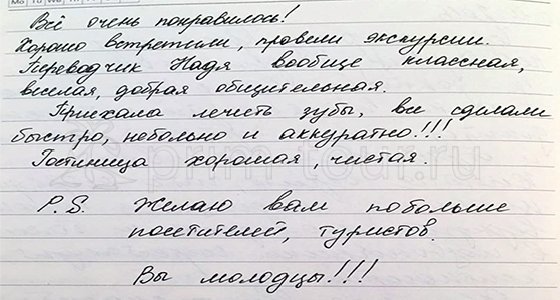 Всё очень понравилось!
Хорошо встретили, провели экскурсии.
Переводчик Надя вообще классная,
веселая, добрая общительная.
Приехала лечить зубы, все сделали
быстро, небольно и аккуратно!!!
Гостиница хорошая, чистая.
prim-tour.ru
P.S. Желаю вам побольше
посетителей, туристов.
Вы молодцы!!!